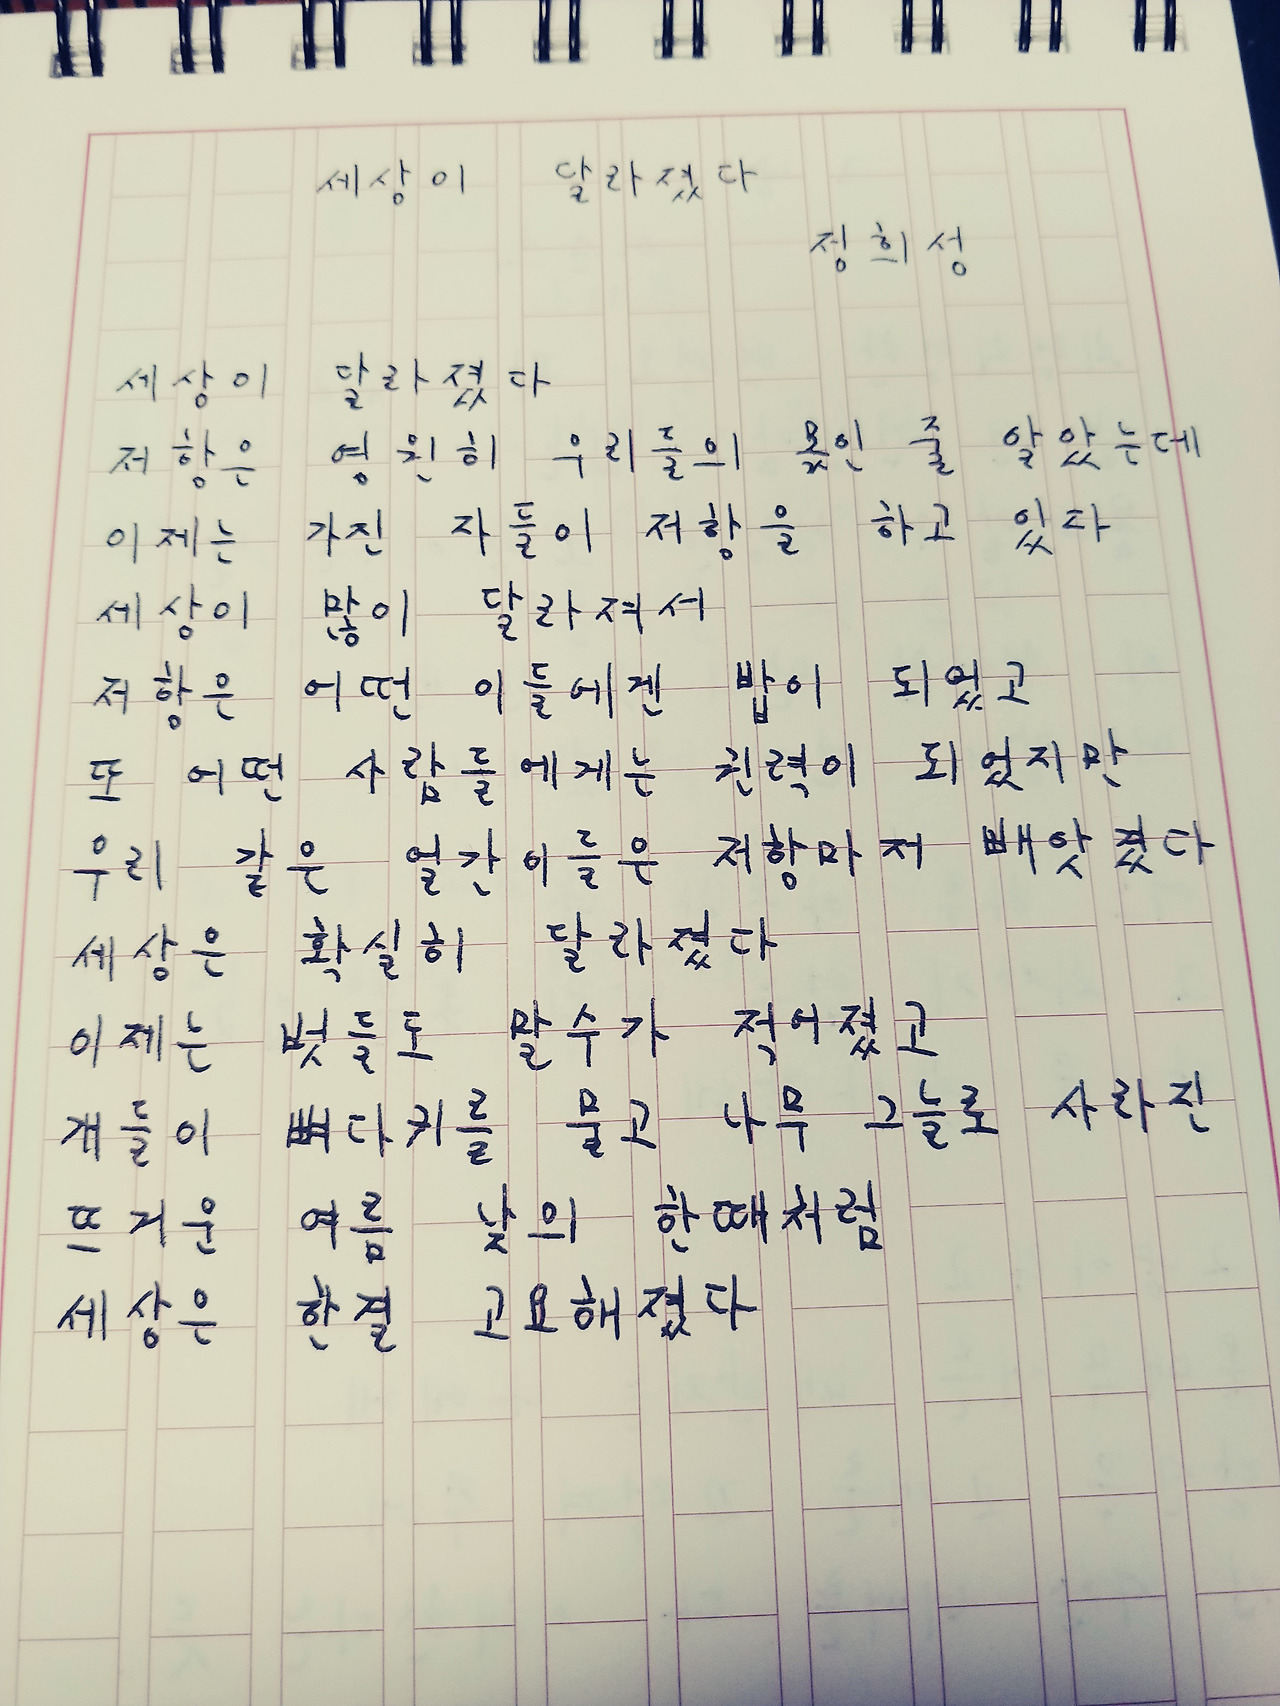 세상이 달라졌다
정희성
세상이 달라졌다
저항은 영원히 우리들의 몫인 줄 알았는데
이제는 가진 자들이 저항을 하고 있다
세상이 많이 달라져서
저항은 어떤 이들에겐 밥이 되었고
또 어떤 사람들에게는 권력이 되었지만
우리 같은 얼간이들은 저항마저 빼앗겼다
세상은 확실히 달라졌다
이제는 벗들도 말수가 적어졌고
개들이 뼈다귀를 물고 나무 그늘로 사라진
뜨거운 여름 낮의 한때처럼
세상은 한결 고요해졌다